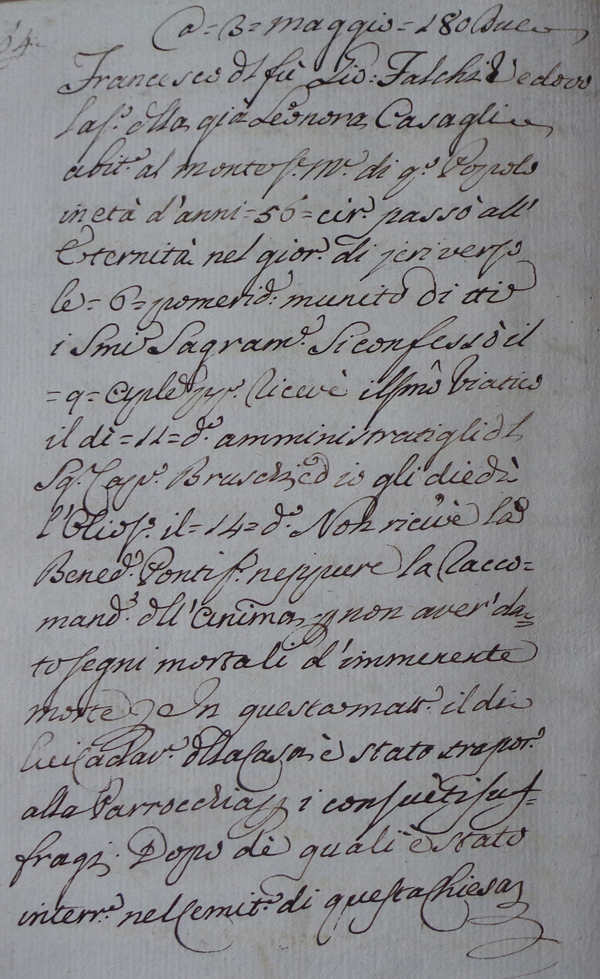 a = 3 = maggio = 180due
Francesco dl fù Gio: Falchi Vedovo
laſ.º dlla già Leonora Casaglia
abit.e al monte ſ. M.ª di q.º Popolo
in età d'anni = 56 = cir.ª passò all'
Eternità nel gior.º di jeri verſo
le = 6 = pomerid: munito di tti
i Smi Sagram.ti Si confessò il
= 9 = Aple ricevè il Smo Viatico
il dì = 11 = d.º amministratigli dl
Sg.r Capp.º Bruschi ed io gli diedi
l'Olio ſ.º il = 14 = d.º Non ricevè la
Bened.e Pontif.ª neppure la Racco=
mand.e dll'anima p non aver da=
to segni mortali d'imminente
morte; In questa matt.ª il di
lui Cadav.e dlla Casa è stato traspor.º
alla Parrocchia p i consueti suf=
fragj. Dopo de quali è stato
interr.º nel Cemit.º di questa Chiesa